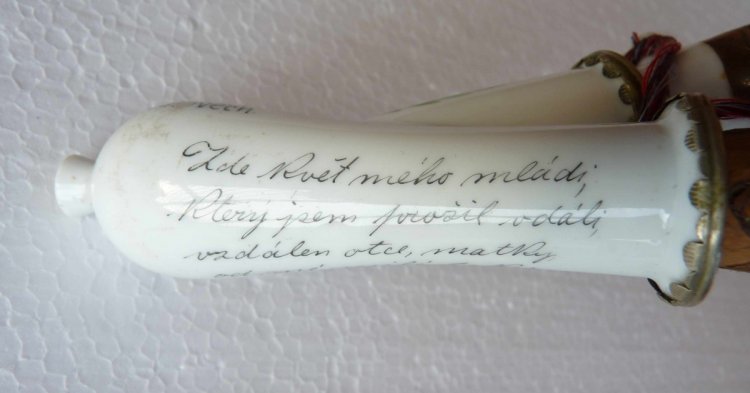 Zde květ mého mládí,
který jsem prožil vdáli,
vzdálen otce, matky
od